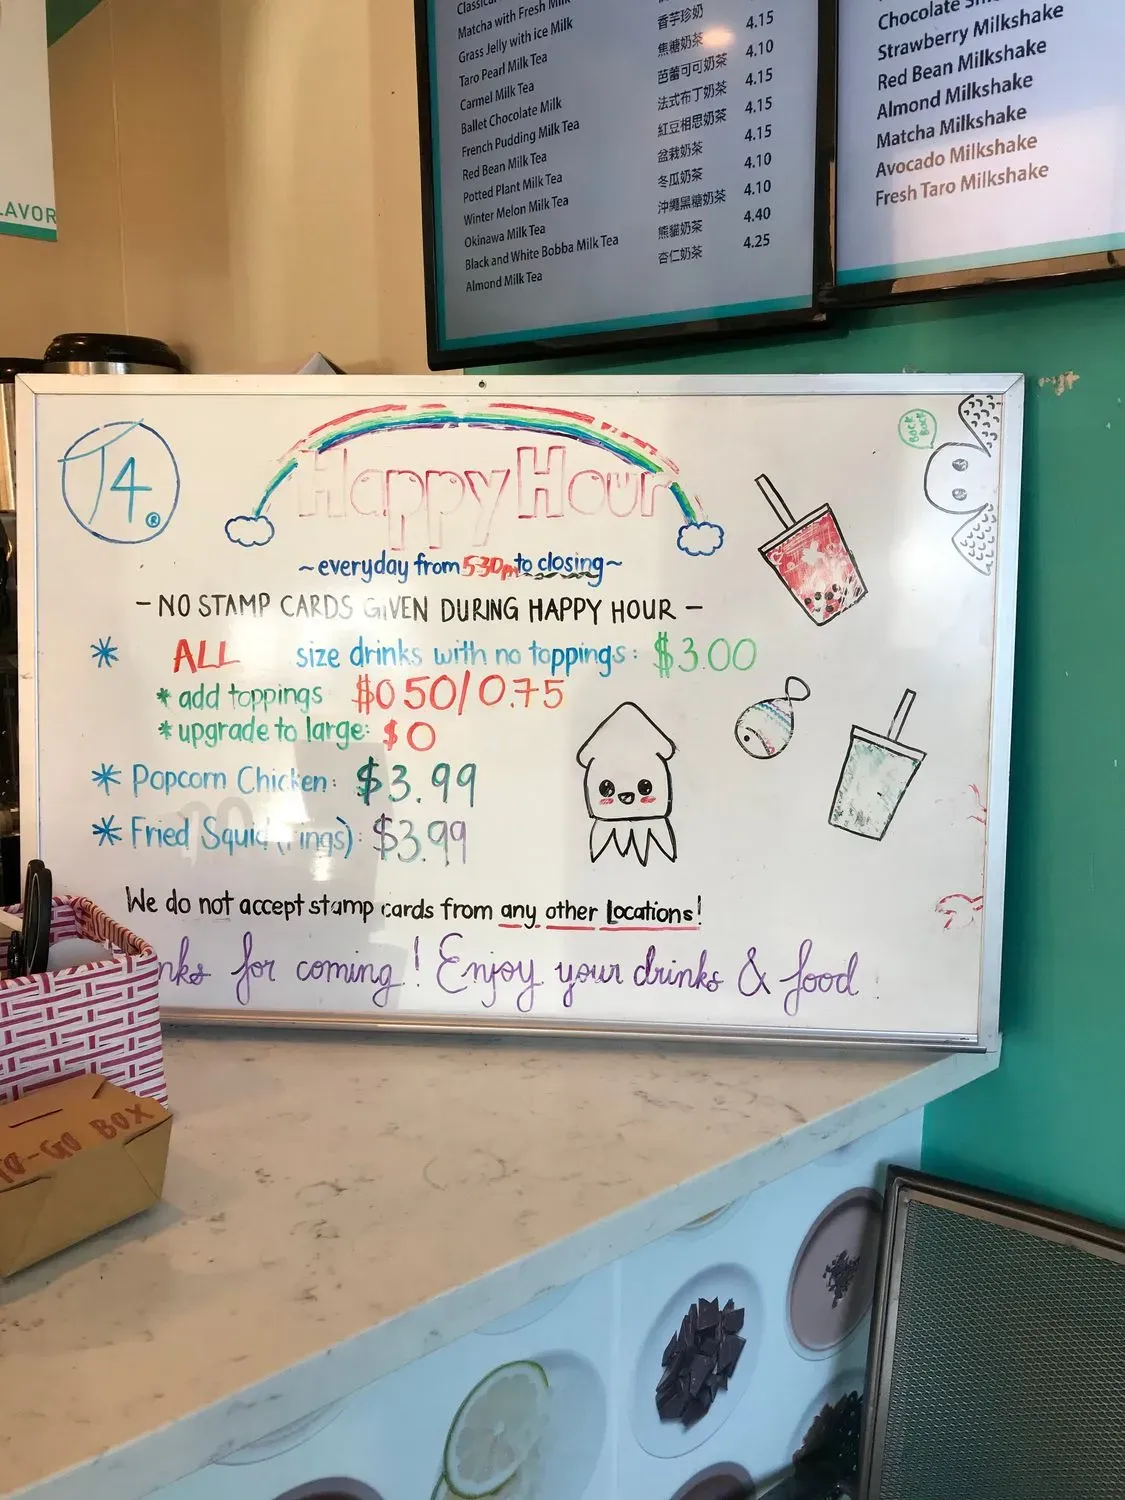 LAVOR
Matcha with Fresh Milk
Grass Jelly with ice Milk
Taro Pearl Milk Tea
Carmel Milk Tea
Ballet Chocolate Milk
French Pudding Milk Tea
Red Bean Milk Tea
Potted Plant Milk Tea
Winter Melon Milk Tea
Okinawa Milk Tea
Black and White Bobba Milk Tea
Almond Milk Tea
香芋珍奶
焦糖奶茶
芭蕾可可奶茶
法式布丁奶茶
紅豆相思奶茶
盆栽奶茶
冬瓜奶茶
沖繩黑糖奶茶
熊貓奶茶
杏仁奶茶
4.15
4.10
4.15
4.15
4.15
4.10
4.10
4.40
4.25
Chocolate
Strawberry Milkshake
Red Bean Milkshake
Almond Milkshake
Matcha Milkshake
Avocado Milkshake
Fresh Taro Milkshake
T4®
Happy Hour
~everyday from 5:30pm to closing~
- NO STAMP CARDS GIVEN DURING HAPPY HOUR -
* ALL size drinks with no toppings: $3.00
* add toppings $0.50/0.75
* upgrade to large: $0
* Popcorn Chicken: $3.99
* Fried Squid (rings): $3.99
We do not accept stamp cards from any other locations!
nks for coming! Enjoy your drinks & food
To-Go Box